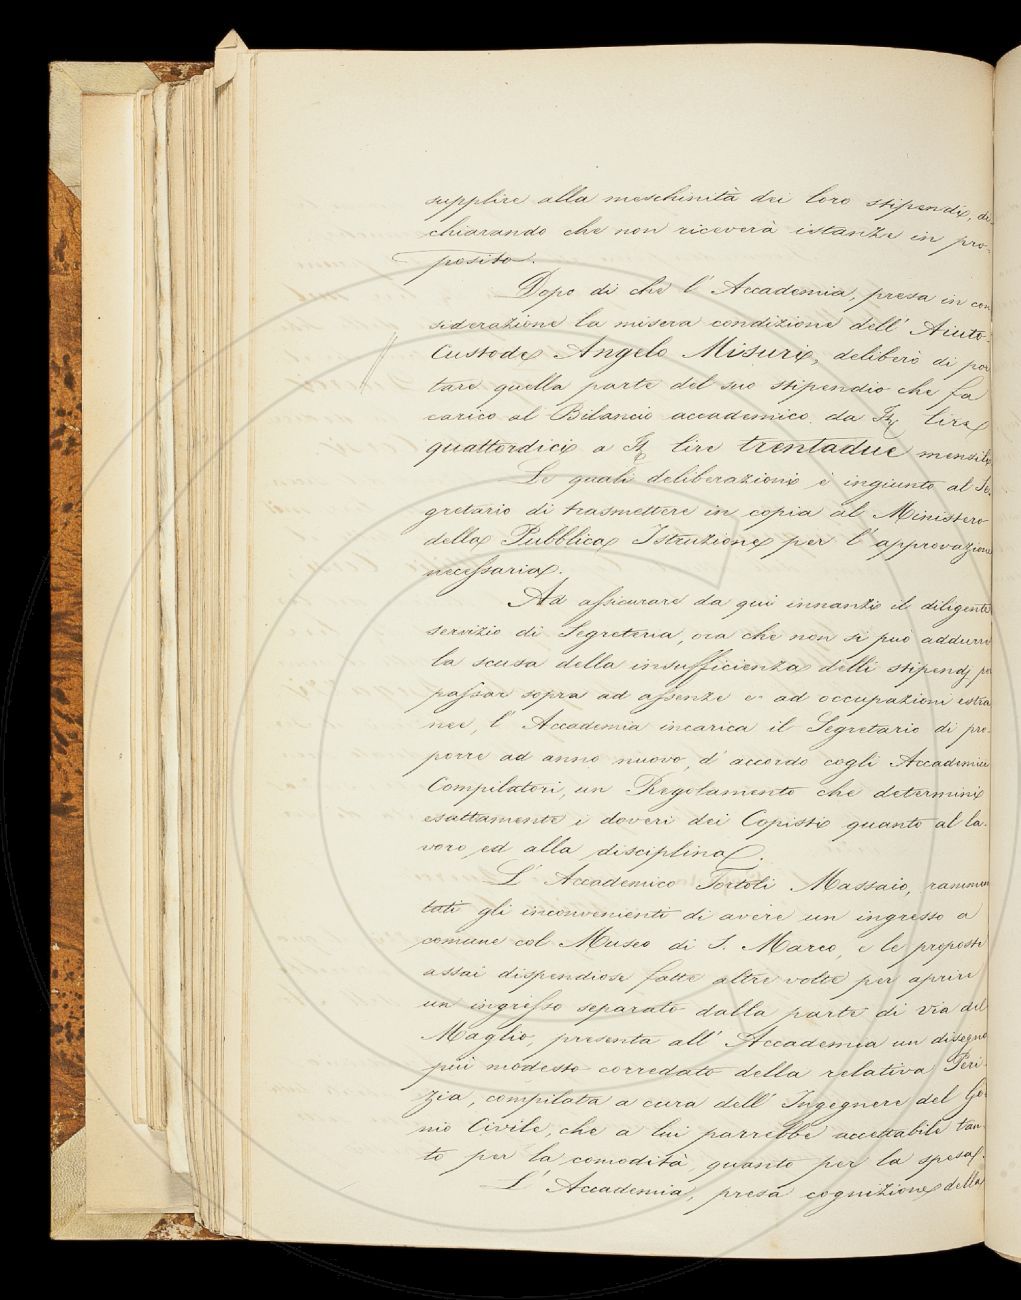 supplire alla meschinità dei loro stipendi, di-
chiarando che non riceverà istanze in pro-
posito.
Dopo di che l'Accademia, presa in con
siderazione la misera condizione dell'Aiuto-
Custode Angelo Misuri, deliberò di por
tare quella parte del suo stipendio che fa
carico al Bilancio accademico da It. lire
quattordici a It. lire trentadue mensili.
Le quali deliberazioni è ingiunto al Se-
gretario di trasmettere in copia al Ministero
della Pubblica Istruzione per l'approvazione
necessaria.
Ad assicurare da qui innanzi il diligente
servizio di Segreteria, ora che non si può addurre
la scusa della insufficienza delli stipendj per
passar sopra ad assenze e ad occupazioni estra
nee, l'Accademia incarica il Segretario di pro-
porre ad anno nuovo, d'accordo cogli Accademici
Compilatori, un Regolamento che determini
esattamente i doveri dei Copisti quanto al la-
voro ed alla disciplina.
L'Accademico Tortoli Massaio, rammen
tati gli inconvenienti di avere un ingresso a
comune col Museo di S. Marco, e le proposte
assai dispendiose fatte altre volte per aprire
un ingresso separato dalla parte di Via del
Maglio, presenta all'Accademia un disegno
più modesto corredato della relativa Peri-
zia, compilata a cura dell'Ingegnere del Ge-
nio Civile, che a lui parrebbe accettabile tan-
to per la comodità, quanto per la spesa.
L'Accademia, presa cognizione della